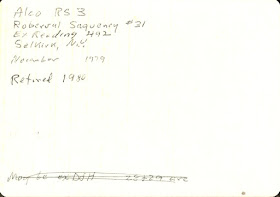 Alco RS3
Roberval Saguenay #21
Ex Reading 492
Selkirk, N.Y.
November 1979
Retired 1980
May be ex D&H